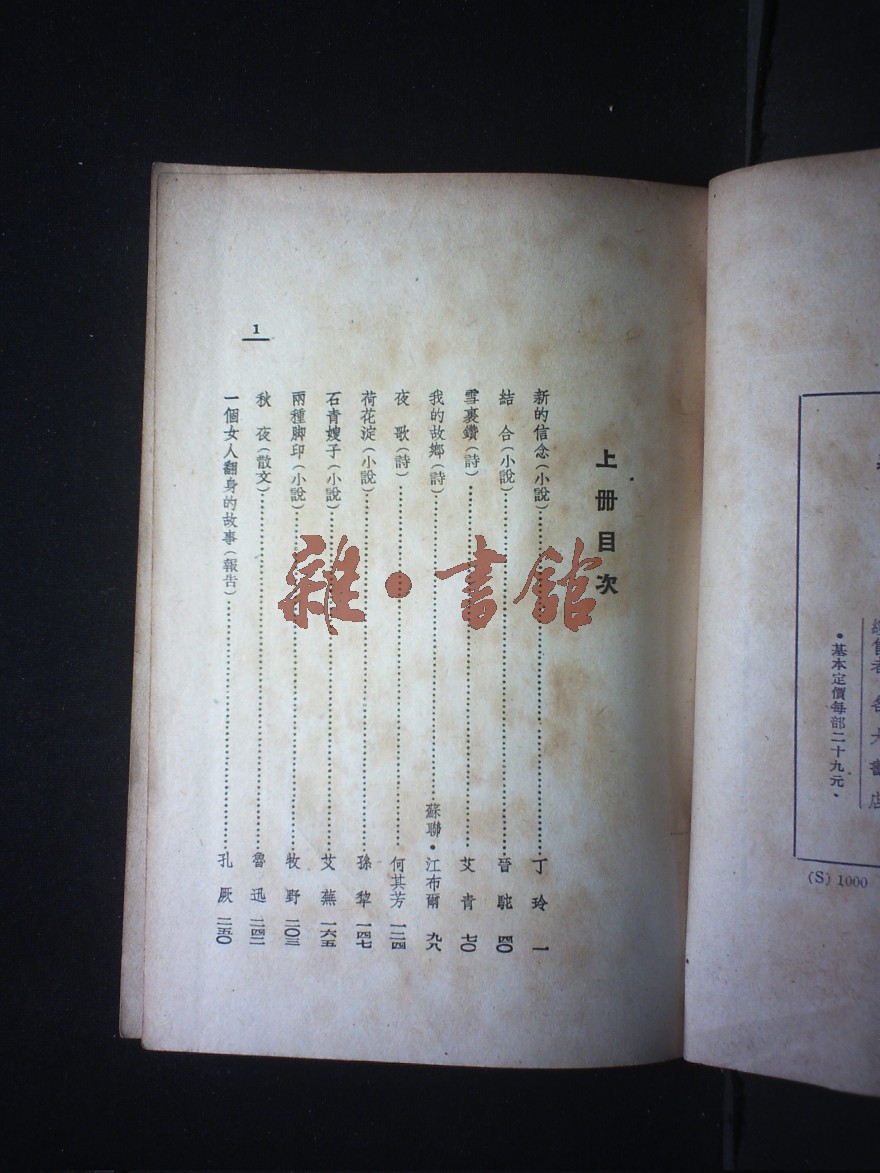 基本定價每部二十九元
(S) 1000
上冊目次
新的信念(小說)⋯⋯丁玲 一
結合(小說)⋯⋯晉駝 四〇
雪裏鑽(詩)⋯⋯艾青 七〇
我的故鄉(詩)⋯⋯蘇聯・江布爾 九八
夜歌(詩)⋯⋯何其芳 一二四
荷花淀(小說)⋯⋯孫犂 一四七
石青嫂子(小說)⋯⋯艾蕪 一六五
兩種脚印(小說)⋯⋯牧野 二〇三
秋夜(散文)⋯⋯魯迅 二四二
一個女人翻身的故事(報告)⋯⋯孔厥 二五〇
1
雜・書館